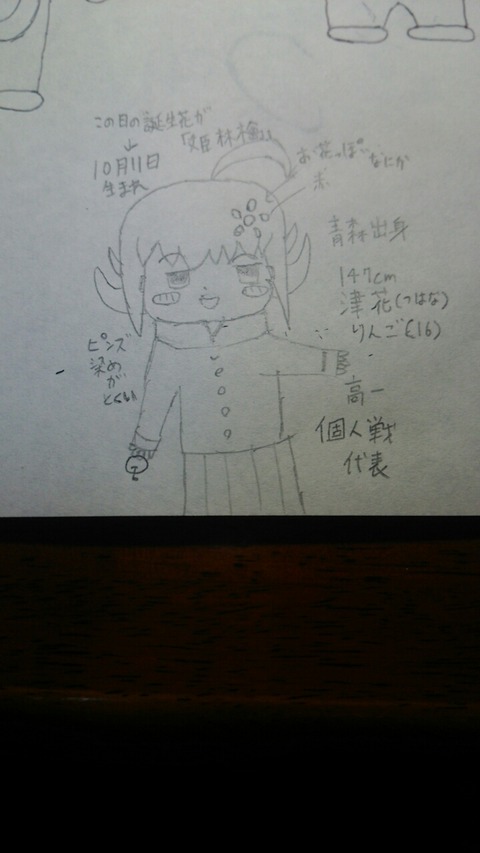 この日の誕生花が
「姫林檎」
10月11日
生まれ
お花っぽい なにか
赤
青森出身
147cm
津花(つはな)
りんご(16)
ピンズ
染め
が
とくい
高一
個人戦
代表